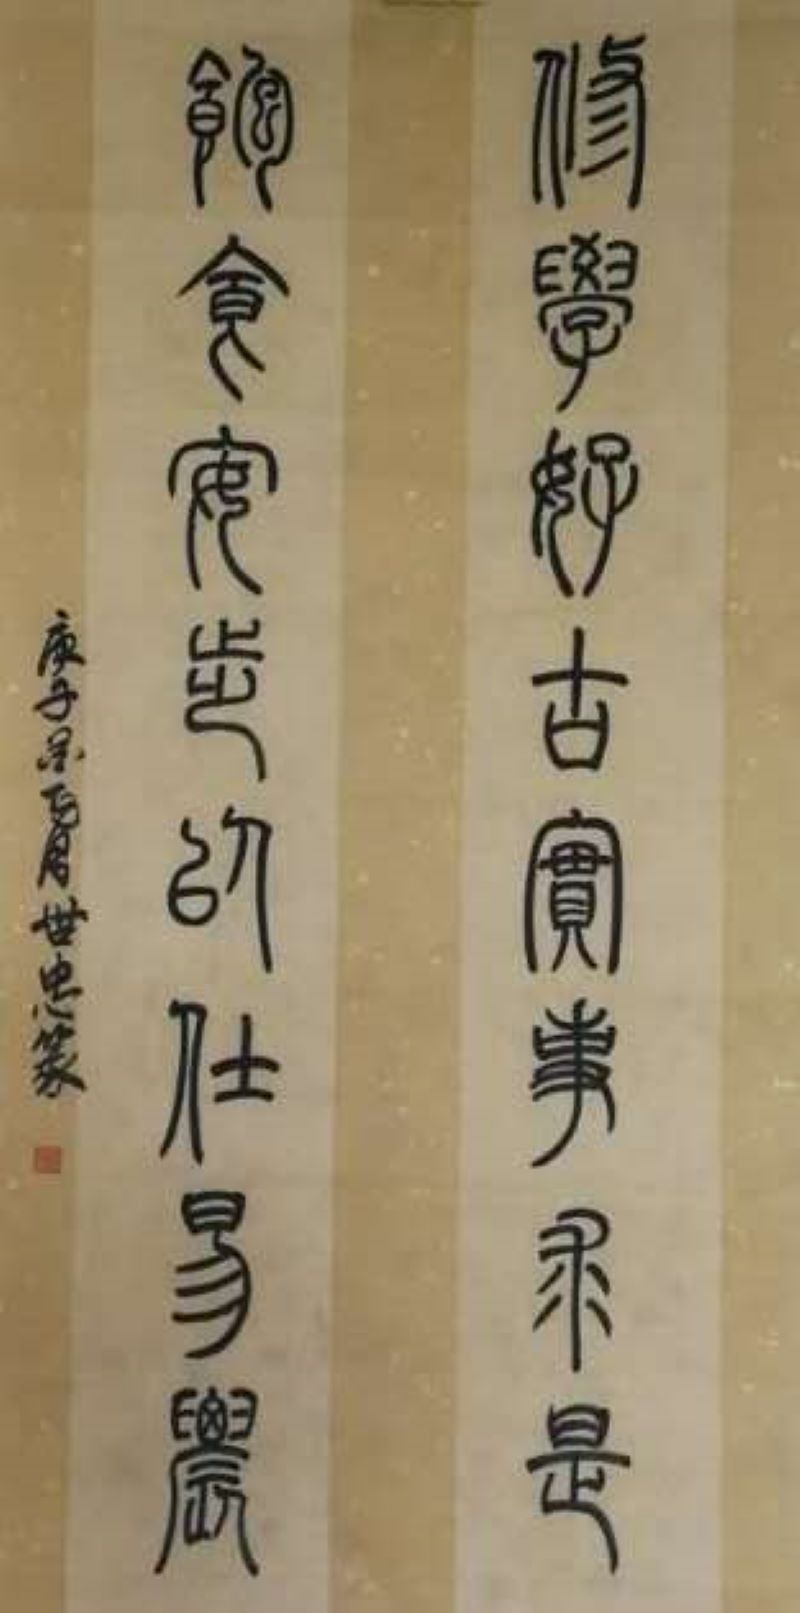 修學好古實事求是
飽食安步以仕易農
庚子 世忠篆